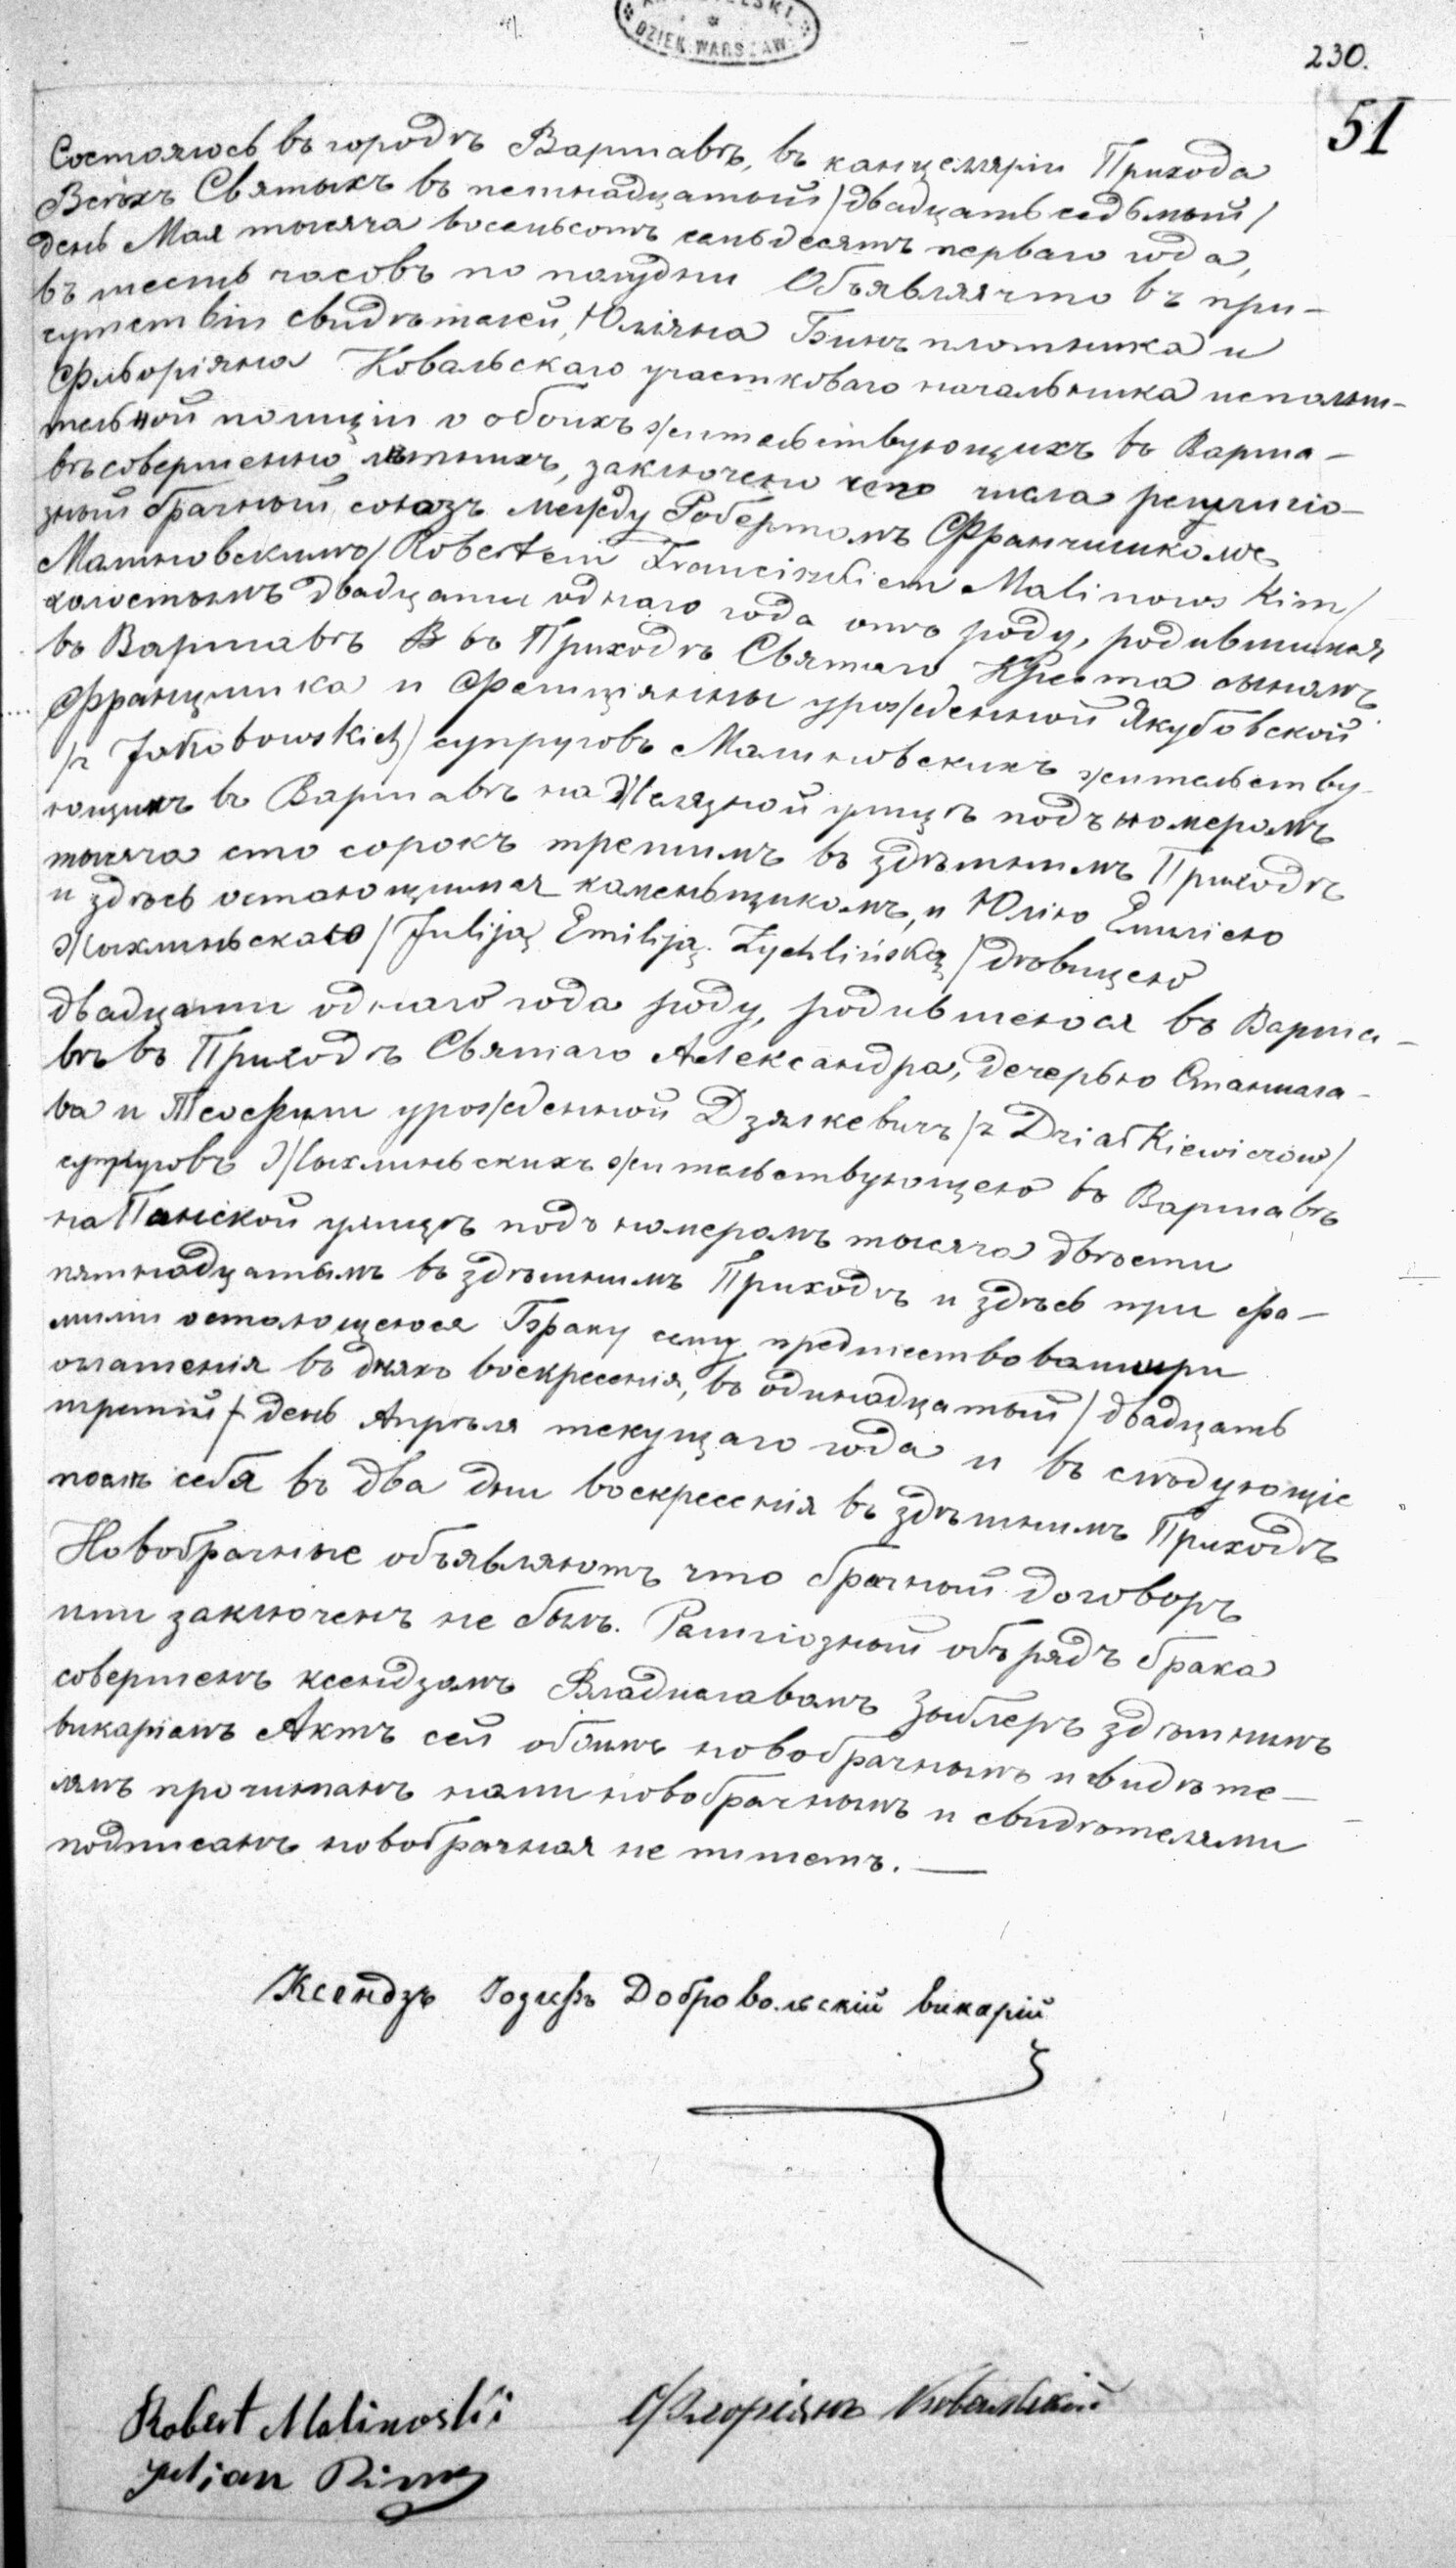 DZIEK. WARSZAW.
230.
51
Состоялось въ городѣ Варшавѣ, въ канцеляріи Прихода
Всѣхъ Святыхъ въ петнадцатый /двадцать седьмый/
день Мая тысяча восемьсотъ семьдесятъ перваго года,
въ шесть часовъ по полудни Объявляя что въ при-
сутствіи свидѣтелей, Юліяна Бинъ плотника и
Фльоріяна Ковальскаго участковаго начальника исполни-
тельной полиціи о обоихъ жительствующихъ въ Варша-
вѣ совершенно лѣтнихъ, заключено сего числа религіо-
зный брачный союзъ между Робертомъ Францишкомъ
Малиновскимъ /Robertem Franciszkiem Malinowskim/
холостымъ двадцати однаго года отъ роду, родившимся
въ Варшавѣ В въ Приходѣ Святаго Креста сыномъ
Францишка и Фелиціянны урожденной Якубовской
/z Jakobowskich/ супруговъ Малиновскихъ жительству-
ющихъ въ Варшавѣ на Желязной улицѣ подъ номеромъ
тысяча сто сорокъ третимъ въ здѣшнимъ Приходѣ
и здѣсь остающимся каменьщикомъ, и Юлію Емилію
Жыхлиньскаю /Juliją Emiliją Zychlińską/ дѣвицею
двадцати однаго года роду, родившеюся въ Варша-
вѣ въ Приходѣ Святаго Александра, дечерью Станисла-
ва и Теофили урожденной Дзялкевичъ /z Działkiewiczów/
супруговъ Жыхлиньскихъ жительствующею въ Варшавѣ
на Панской улицѣ подъ номеромъ тысяча двѣсти
пятнадцатымъ въ здѣшнимъ Приходѣ и здѣсь при фа-
милии остающеюся Браку сему предшествовали три
оглашенія въ дняхъ воскресенія, въ одинадцатый /двадцать
третій/ день Апрѣля текущаго года и въ слѣдующіе
послѣ себя въ два дни воскресенія въ здѣшнимъ Приходѣ
Новобрачные объявляютъ что брачный договоръ
ими заключенъ не былъ. Религіозный обърядъ брака
совершенъ ксендзомъ Владиславомъ Зыблеръ здѣшнимъ
викаріемъ Актъ сей обоимъ новобрачнымъ и свидѣте-
лямъ прочитанъ нами новобрачнымъ и свидѣтелями
подписанъ новобрачная не пишетъ.
Ксендзъ Іозефъ Добровольскій викарій
Robert Malinoski
Фльоріянъ Ковальскій
Julian Bin